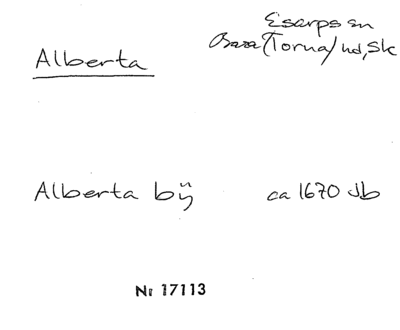 Esarps sn
Alberta
Bara (Torna) hd, Sk
Alberta bÿ
ca 1670 Jb
Nr 17113